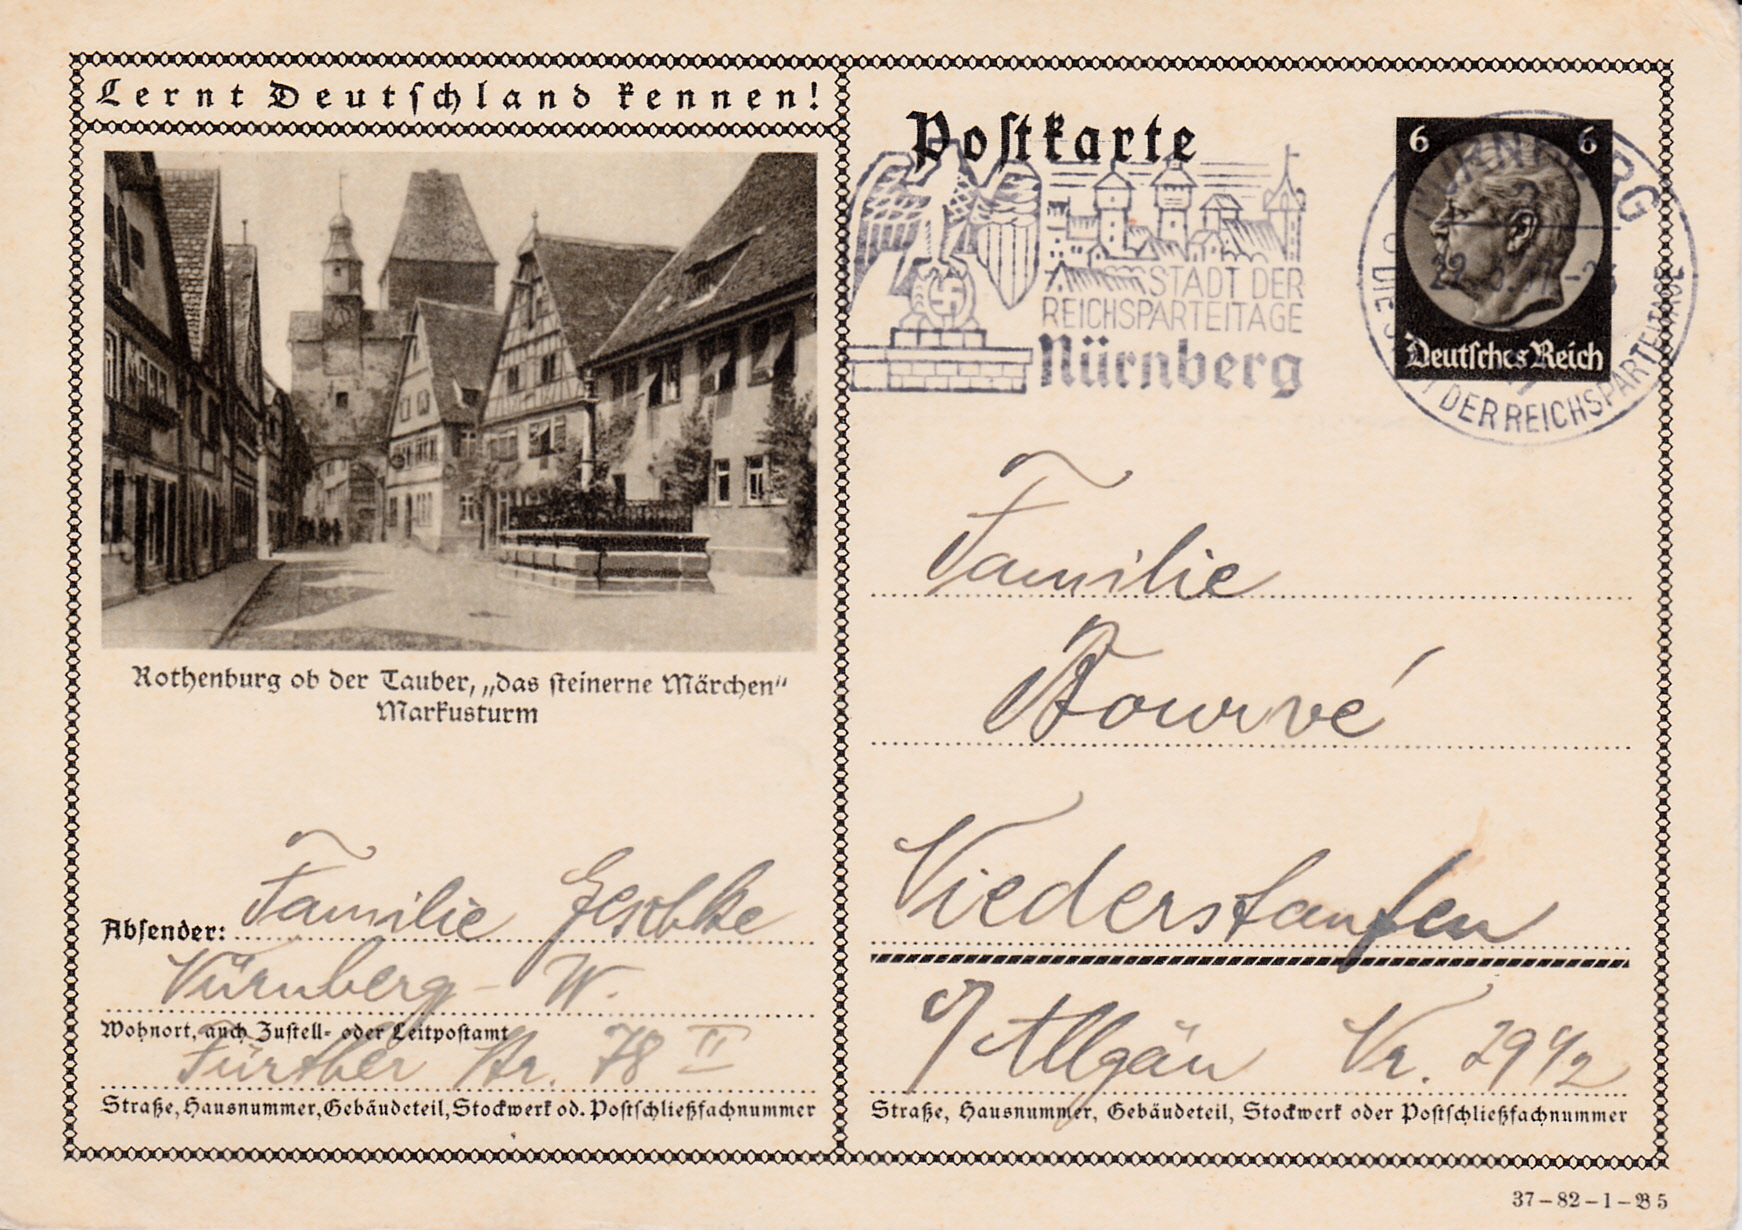 Lernt Deutschland kennen!
Rothenburg ob der Tauber, „das steinerne Märchen“
Markusturm
Absender: Familie Geschke
Nürnberg - W.
Wohnort, auch Zustell- oder Leitpostamt
Fürther Str. 78 II
Straße, Hausnummer, Gebäudeteil, Stockwerk od. Postschließfachnummer
Postkarte
STADT DER
REICHSPARTEITAGE
Nürnberg
6 6
Deutsches Reich
NÜRNBERG
DIE STADT DER REICHSPARTEITAGE
Familie
Niederstaufen
i/Allgäu Nr. 29 1/2
Straße, Hausnummer, Gebäudeteil, Stockwerk oder Postschließfachnummer
37-82-1-B5